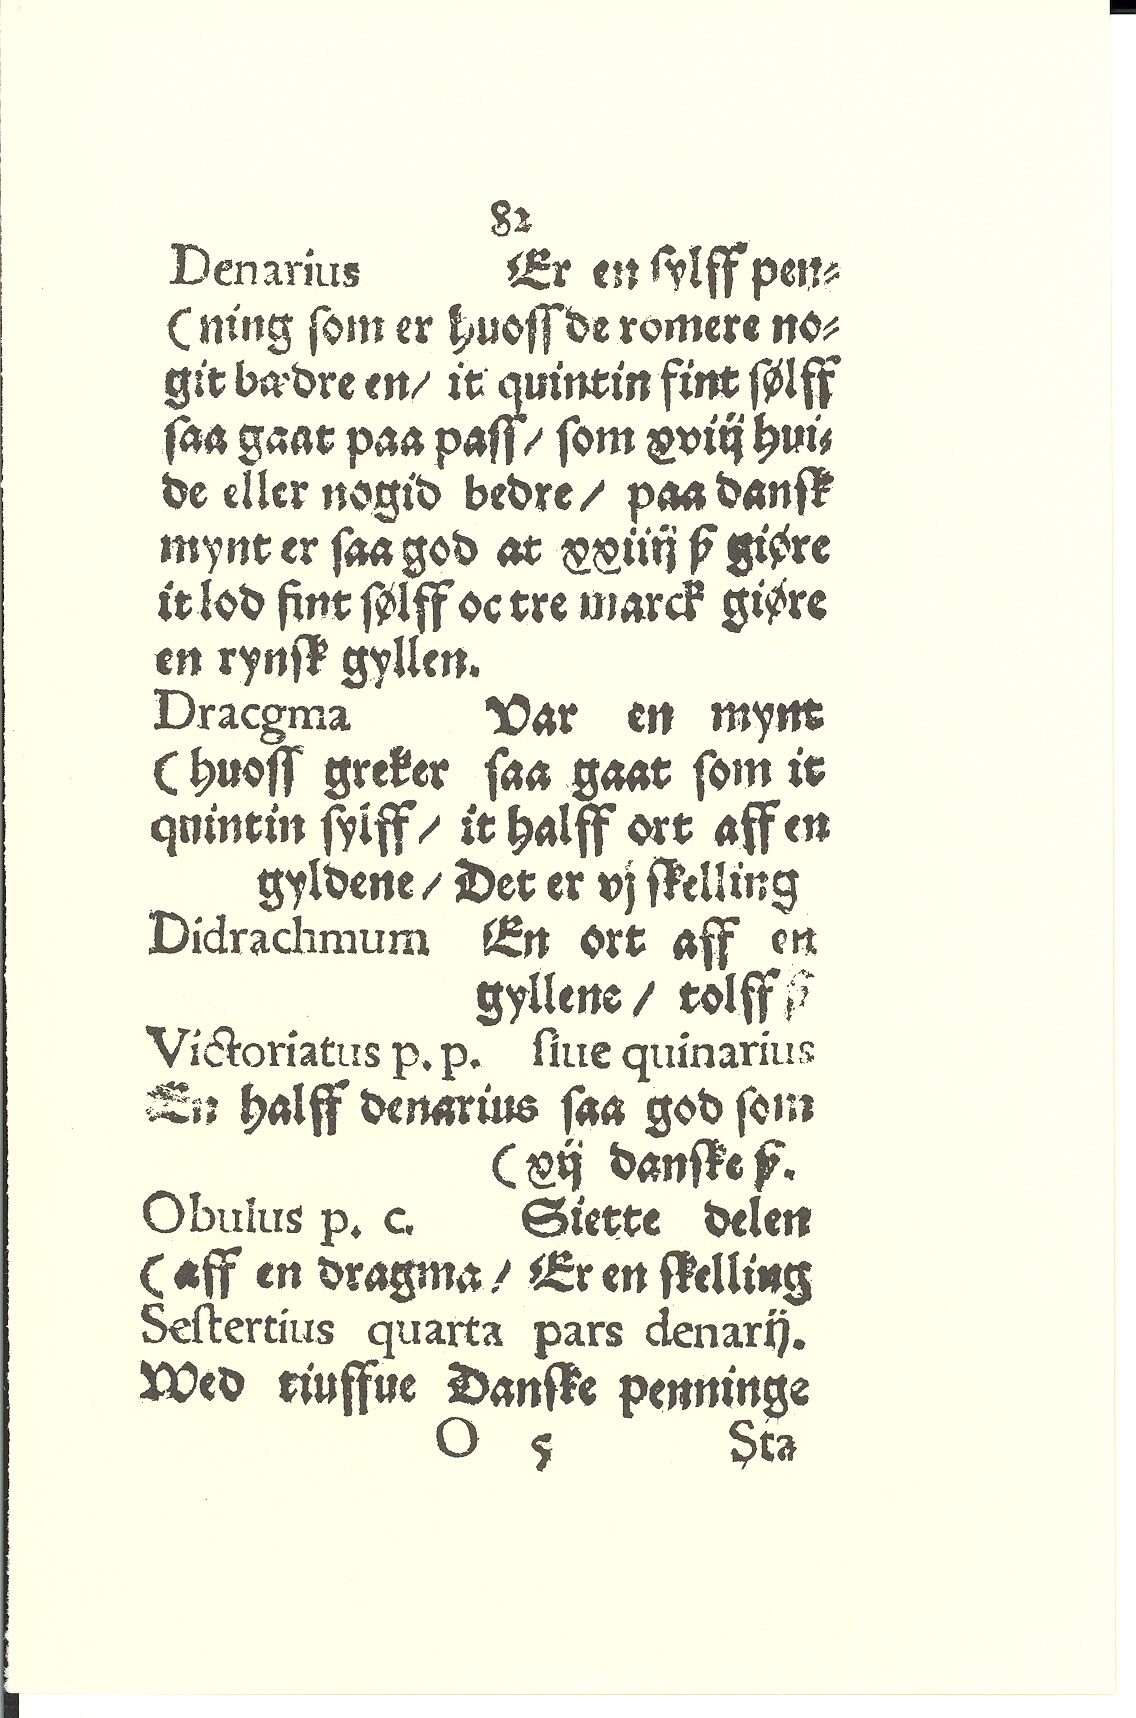 82
Denarius Er en sylff pen⸗
(ning som er huoss de romere no⸗
git bædre en/ it quintin fint sølff
saa gaat paa pass/ som xviij hui⸗
de eller nogid bedre/ paa dansk
mynt er saa god at xxiiij ꝑ giøre
it lod fint sølff oc tre marck giøre
en rynsk gyllen.
Dracgma Var en mynt
(huoss greker saa gaat som it
quintin sylff/ it halff ort aff en
gyldene/ Det er vj skelling
Didrachmum En ort aff en
gyllene/ tolff ꝑ
Victoriatus p. p. siue quinarius
En halff denarius saa god som
(xij danske ꝑ.
Obulus p. c. Siette delen
(aff en dragma/ Er en skelling
Sestertius quarta pars denarij.
Wed tiuffue Danske penninge
O 5 Sta